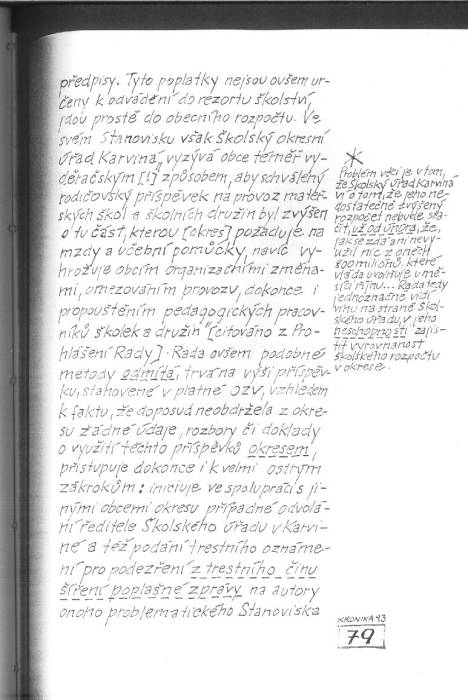 předpisy. Tyto poplatky nejsou ovšem ur-
čeny k odvádění do rezortu školství,
jdou prostě do obecního rozpočtu. Ve
svém Stanovisku však Školský okresní
úřad Karviná „vyzývá obce téměř vy-
děračským [!] způsobem, aby schválený
rodičovský příspěvek na provoz mateř-
ských škol a školních družin byl zvýšen
o tu část, kterou [okres] požaduje na
mzdy a učební pomůcky, navíc vy-
hrožuje obcím organizačními změna-
mi, omezováním provozu, dokonce i
propouštěním pedagogických pracov-
níků školek a družin" [citováno z Pro-
hlášení Rady]. Rada ovšem podobné
metody odmítá, trvá na výši příspěv-
ku, stanovené v platné OZV, vzhledem
k faktu, že doposud neobdržela z okre-
su žádné údaje, rozbory či doklady
o využití těchto příspěvků okresem,
přistupuje dokonce i k velmi ostrým
zákrokům: iniciuje ve spolupráci s ji-
nými obcemi okresu případné odvolá-
ní ředitele Školského úřadu v Karvi-
né a též podání trestního oznáme-
ní pro podezření z trestního činu
šíření poplašné zprávy na autory
onoho problematického Stanoviska
*
Problém věcí je v tom,
že Školský úřad Karviná
ví o tom, že jeho ne-
dostatečně zvýšený
rozpočet nebude sta-
čit, už od února, že,
jak se zdá ani nevy-
užil nic z oněch
800 milionů, které
vláda uvolňuje v mě-
síci říjnu... Rada tedy
jednoznačně vidí
vinu na straně Škol-
ského úřadu, v jeho
neschopnosti zajis-
tit vyrovnanost
školského rozpočtu
v okrese.
KRONIKA 93
79